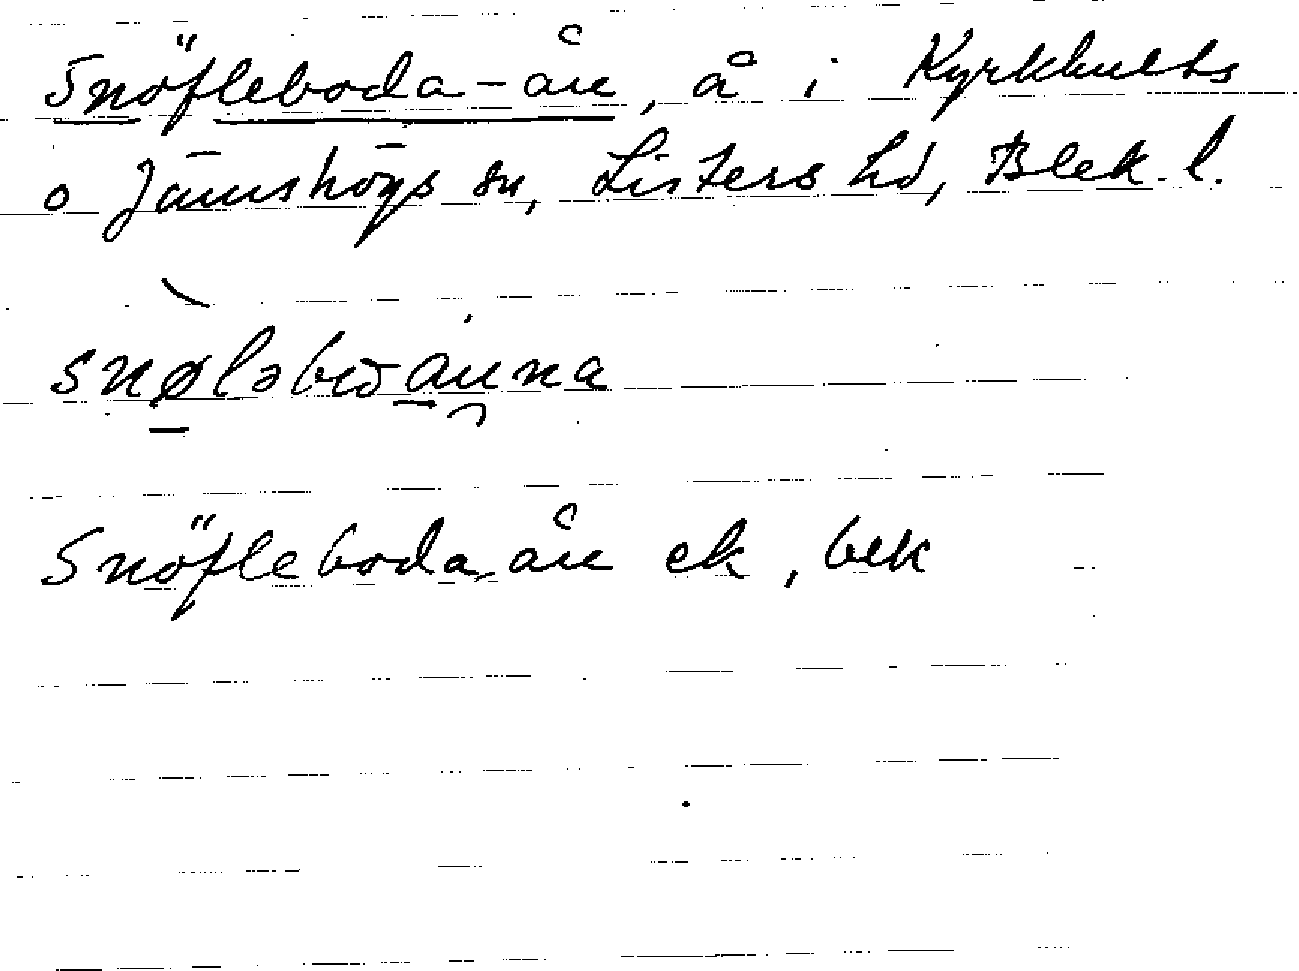 Snöfleboda-ån, å i Kyrkhults
o Jämshögs sn, Listers hd, Blek. l.
Snöfleboda-ån ek, bek